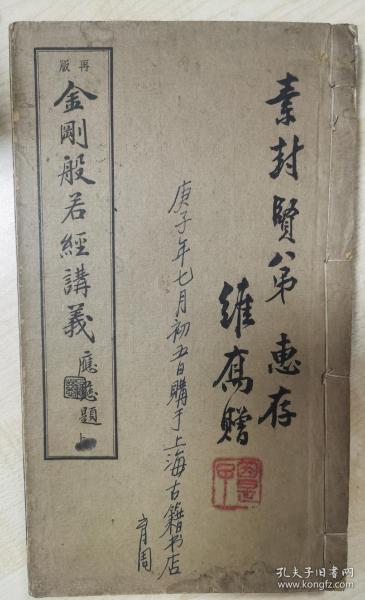 素封賢八弟 惠存
維喬贈
庚子年七月初五日購于上海古籍书店
再版
金剛般若經講義
應慈題
孔夫子旧书网